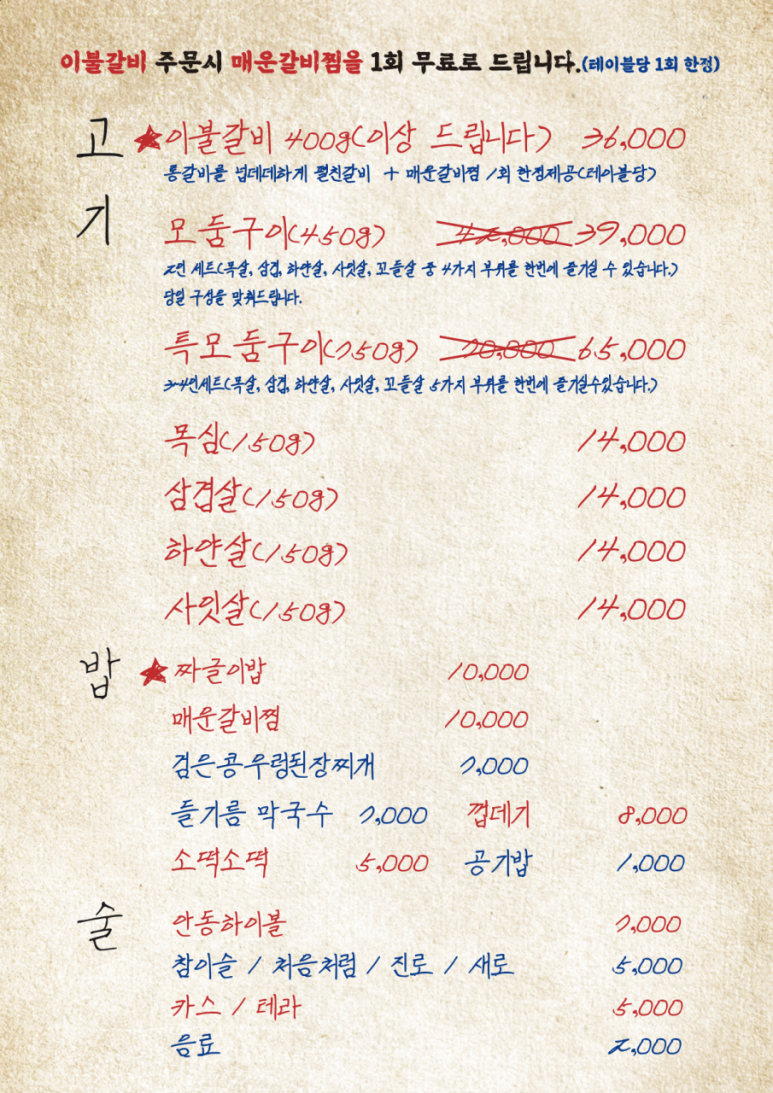 이불갈비 주문시 매운갈비찜을 1회 무료로 드립니다.(테이블당 1회 한정)
고기
★이불갈비 400g(이상 드립니다) 36,000
통갈비를 넙데데하게 펼친갈비 + 매운갈비찜 1회 한정제공(테이블당)
모둠구이(450g) 42,000 39,000
2인 세트(목살, 삼겹, 하얀살, 사잇살, 꼬들살 중 4가지 부위를 한번에 즐기실 수 있습니다.)
당일 구성을 맞춰드립니다.
특모둠구이(750g) 70,000 65,000
3~4인세트(목살, 삼겹, 하얀살, 사잇살, 꼬들살 5가지 부위를 한번에 즐기실수있습니다.)
목심(150g) 14,000
삼겹살(150g) 14,000
하얀살(150g) 14,000
사잇살(150g) 14,000
밥
★짜글이밥 10,000
매운갈비찜 10,000
검은콩우렁된장찌개 7,000
들기름 막국수 7,000 껍데기 8,000
소떡소떡 5,000 공기밥 1,000
술
안동하이볼 7,000
참이슬 / 처음처럼 / 진로 / 새로 5,000
카스 / 테라 5,000
음료 2,000